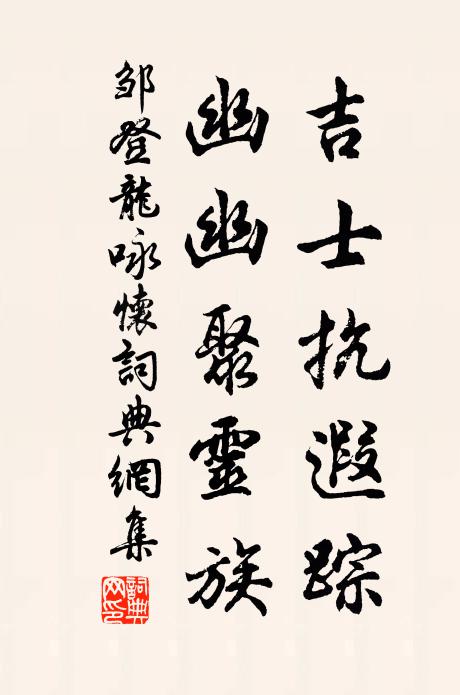 吉士抗遐踪
幽幽聚靈族
邹登龍咏懷詞典網集
詞典网印